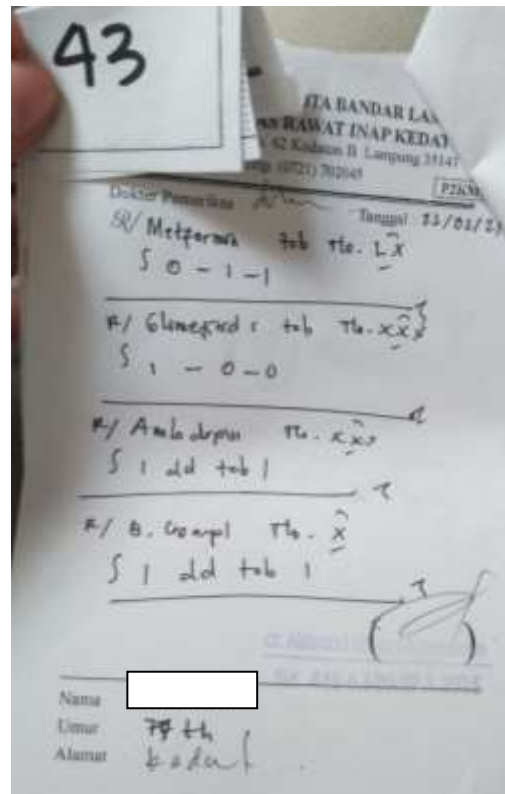 43
ITA BANDAR LA
RAWAT INAP KEDAT
62 Kedaton II Lampung 35147
(0721) 702045
P2KM
Dokter Pemeriksa
Tanggal
R/ Metformin tab No. LX
S 0 - 1 - 1
R/ tab No. XXX
S 1 - 0 - 0
R/ Amlodipin No. XXX
S 1 dd tab 1
R/ B. Compl No. X
S 1 dd tab 1
Nama
Umur th
Alamat